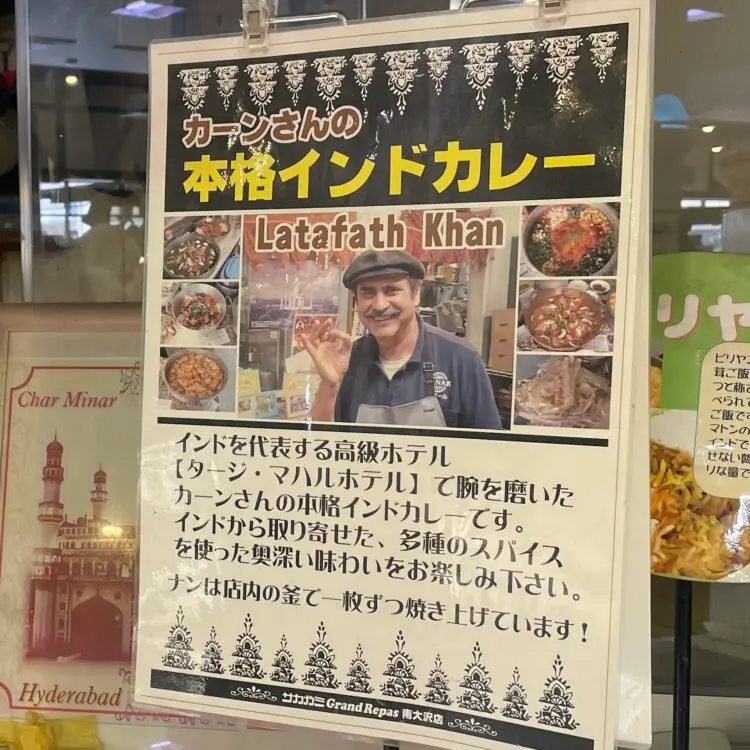 カーンさんの
本格インドカレー
Latafath Khan
インドを代表する高級ホテル
【タージ・マハルホテル】で腕を磨いた
カーンさんの本格インドカレーです。
インドから取り寄せた、多種のスパイス
を使った奥深い味わいをお楽しみ下さい。
ナンは店内の釜で一枚ずつ焼き上げています！
サカガミ Grand Repas 南大沢店
Char Minar
Hyderabad
リヤ
ご飯です
マトンの
インドで